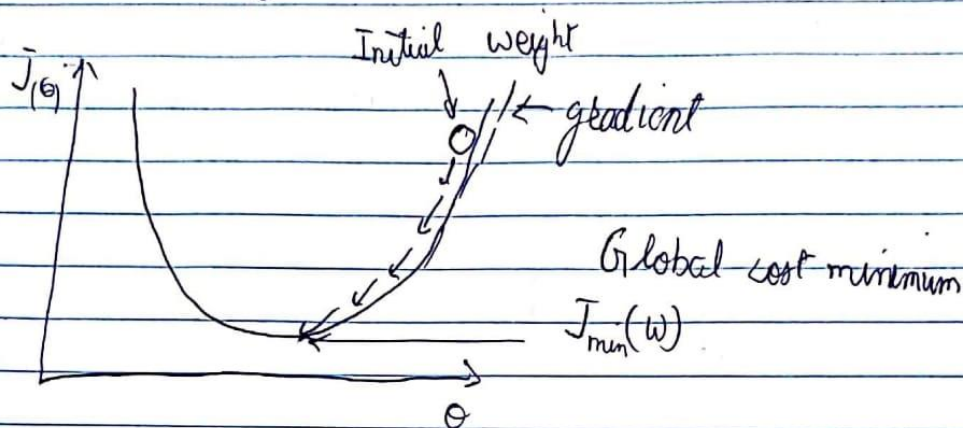 Initial weight
J(θ)
gradient
Global cost minimum
Jmin(W)
θ